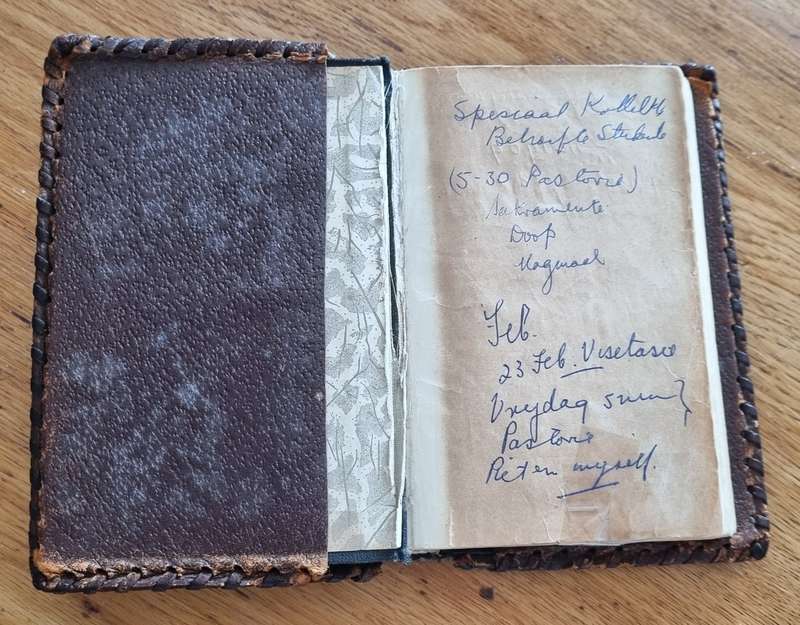 Spesiaal Kollekte
Behoefte Studente
(5-30 Pastorie)
Sakramente
Doop
Nagmaal
Feb.
23 Feb. Visetasie
Vrydag 5 nm }
Pastorie
Piet en myself.